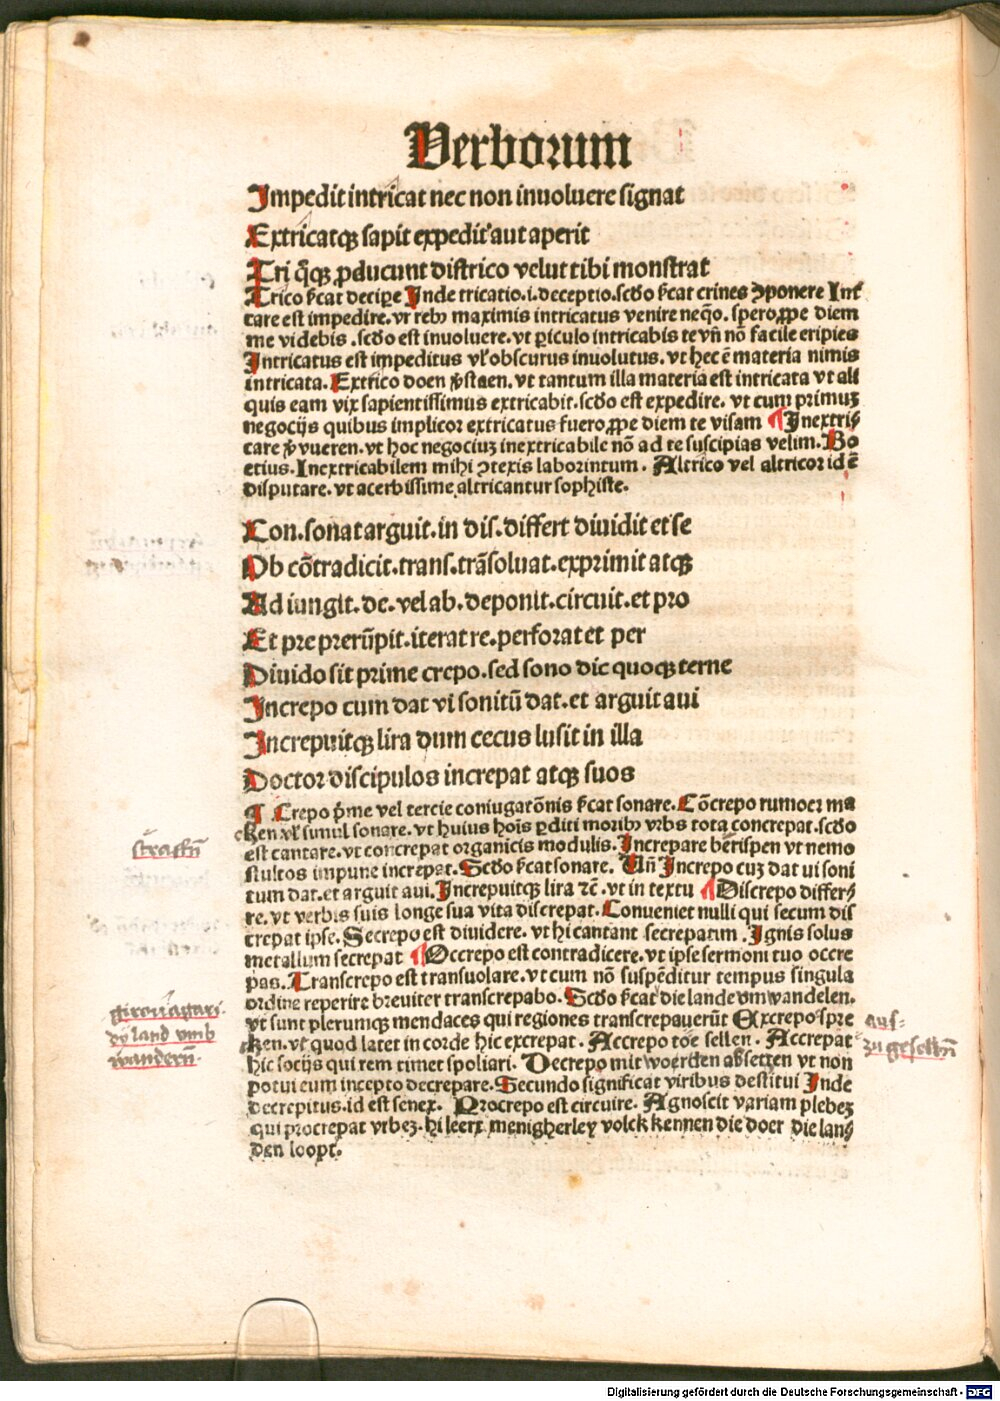 Verborum
Impedit intricat nec non inuoluere signat
Extricatqꝫ sapit expedit aut aperit
Tri q̃qꝫ ꝓducunt districo velut tibi monstrat
Trico ſ̃cat decipe Inde tricatio.i.deceptio.scd̕o ſ̃cat crines ꝯponere Int̃
care est impedire.vt rebꝫ maximis intricatus venire neq̃o.spero,ꝓpe diem
me videbis.scd̕o est inuoluere.vt ꝑiculo intricabis te vñ nõ facile eripies
Intricatus est impeditus vl̕ obscurus inuolutus.vt hec ẽ materia nimis
intricata.Extrico doen v̕staen.vt tantum illa materia est intricata vt ali
quis eam vix sapientissimus extricabit.scd̕o est expedire.vt cum primuꝫ
negocijs quibus implicor extricatus fuero,ꝓpe diem te visam ¶ Inextri⸗
care v̕ vueren.vt hoc negociuꝫ inextricabile nõ ad te suscipias velim.Bo
etius.Inextricabilem mihi ꝯtexis laborintum. Altrico vel altricor id ẽ
disputare.vt acerbissime altricantur sophiste.
Con.sonat arguit.in dis.differt diuidit et se
Ob cõtradicit.trans.trãsoluat.exprimit atqꝫ
Ad iungit.de.vel ab.deponit.circuit.et pro
Et pre prerũpit.iterat re.perforat et per
Diuido sit prime crepo.sed sono dic quoqꝫ terne
Increpo cum dat vi sonitũ dat.et arguit aui
Increpuitqꝫ lira dum cecus lusit in illa
Doctor discipulos increpat atqꝫ suos
¶ Crepo p̃me vel tercie coniugatõnis ſ̃cat sonare.Cõcrepo rumoer ma
ken vl̕ simul sonare.vt huius hoĩs ꝑditi moribꝫ vrbs tota concrepat.scd̕o
est cantare.vt concrepat organicis modulis.Increpare berispen vt nemo
stultos impune increpat.Scd̕o ſ̃cat sonare. Vñ Increpo cuꝫ dat ui soni
tum dat.et arguit aui.Increpuitqꝫ lira ⁊c̃.vt in textu ¶ Discrepo differ⸗
re.vt verbis suis longe sua vita discrepat.Conueniet nulli qui secum dis
crepat ipse.Secrepo est diuidere.vt hi cantant secrepatim.Ignis solus
metallum secrepat ¶ Occrepo est contradicere.vt ipse sermoni tuo occre
pas.Transcrepo est transuolare.vt cum nõ suspẽditur tempus singula
ordine reperire breuiter transcrepabo.Scd̕o ſ̃cat die lande vmwandelen.
vt sunt plerumqꝫ mendaces qui regiones transcrepauerũt Excrepo spre
ken.vt quod latet in corde hic excrepat. Accrepo toe sellen. Accrepat
hic socijs qui rem timet spoliari. Decrepo mit woerden absetzen vt non
potui eum incepto decrepare.Secundo significat viribus destitui Inde
decrepitus.id est senex. Procrepo est circuire.Agnoscit variam plebeꝫ
qui procrepat vrbeꝫ.hi leert menigherley volck kennen die doer die lan⸗
den loopt.
straffñ
girouagari.
dy land vmb
wandern̄.
aus⸗
zu geselln̄
Digitalisierung gefördert durch die Deutsche Forschungsgemeinschaft - DFG